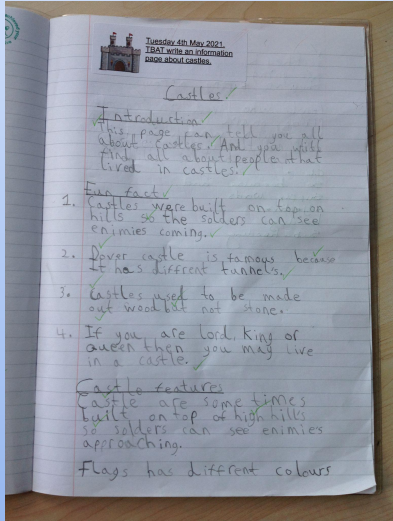 Tuesday 4th May 2021.
TBAT write an information
page about castles.
Castles.
Introduction
This page can tell you all
about castles. And you will
find all about people that
lived in castles.
Fun fact
1. Castles were built on top on
hills so the solders can see
enimies coming.
2. Dover castle is famous because
It has diffrent tunnels.
3. Castles used to be made
out wood but not stone.
4. If you are lord, King or
queen then you may live
in a castle.
Castle features
Castle are some times
built on top of high hills
so solders can see enimies
approaching.
Flags has diffrent colours